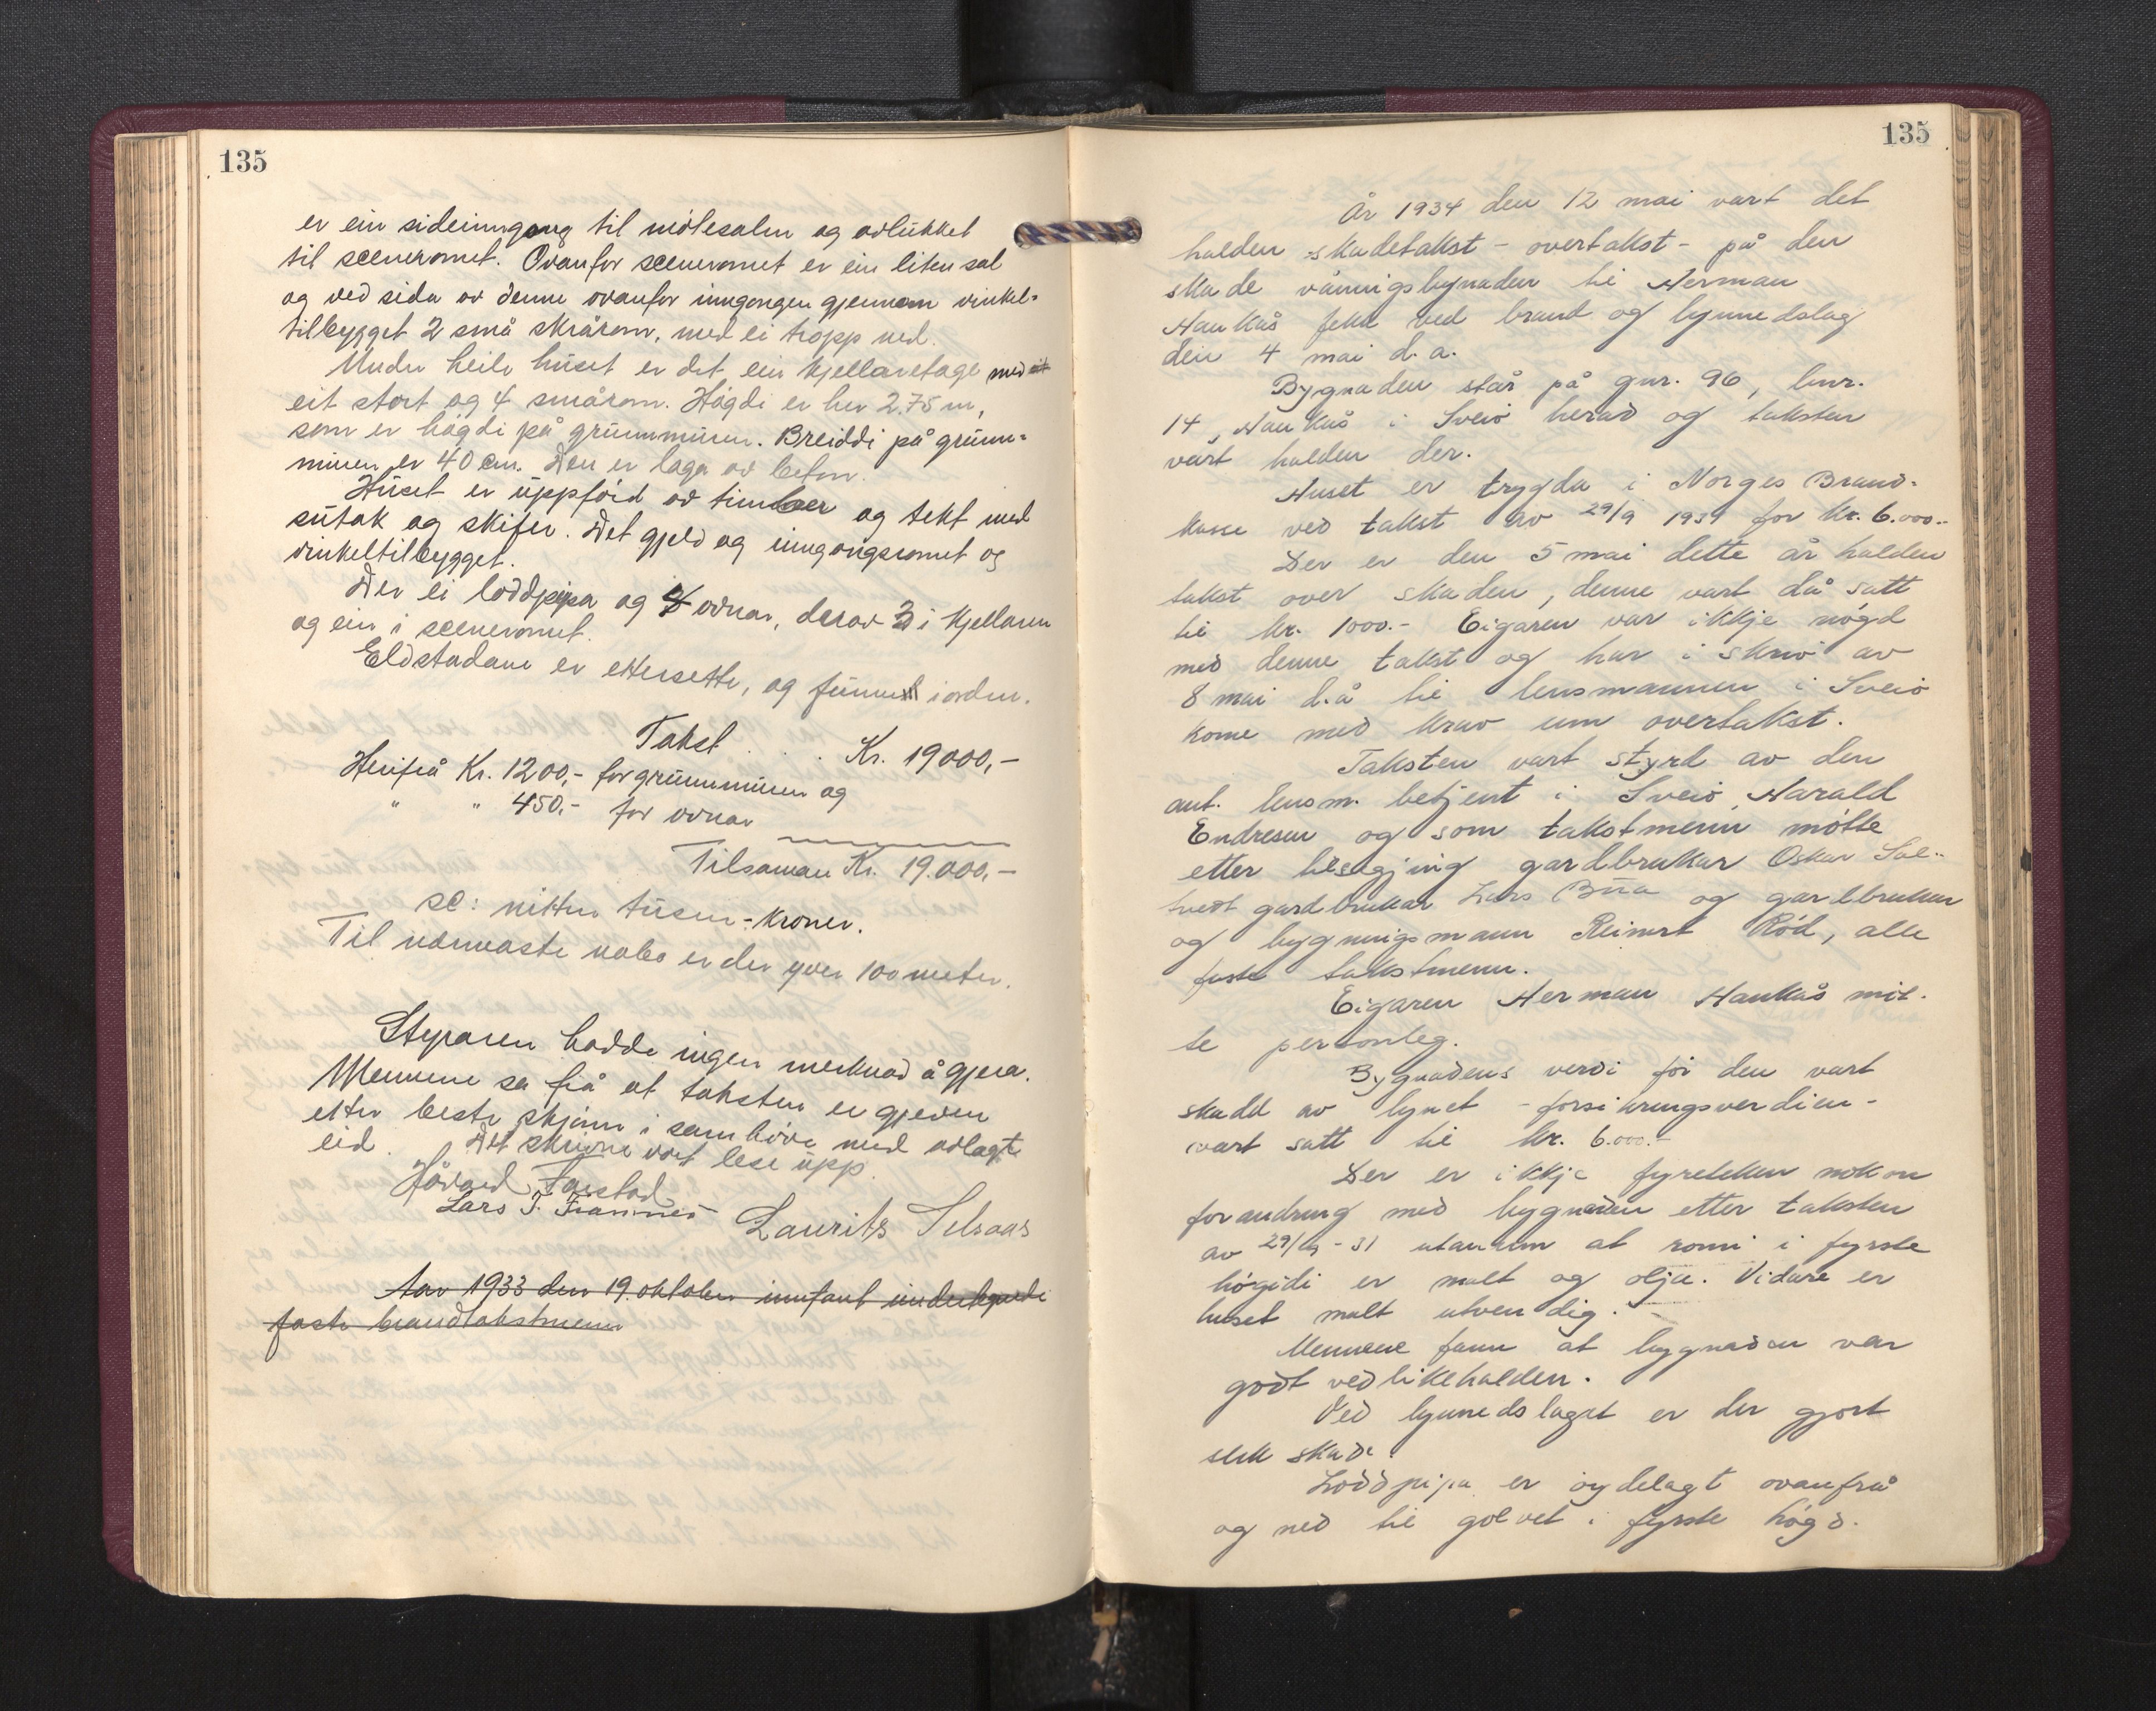 135
er ein sideinngang til møtesalen og avlukket
til sceneromet. Ovanfor sceneromet er ein liten sal
og ved sida av denne ovanfor inngongen gjennom vinkel-
tilbygget 2 små skrårom, med ei tropp ned.
Under heile huset er det ein kjellaretage med
eit stort og 4 smårom. Høgdi er her 2.75 m,
som er høgdi på grunnmuren. Breiddi på grunn-
muren er 40 cm. Den er laga av beton.
Huset er uppförd av timber og tekt med
sutak og skifer. Det gjeld og inngangsromet og
vinkeltilbygget.
Der ei loddpipa og 4 ovnar, derav 3 i kjellaren
og ein i sceneromet.
Eldstadane er ettersette, og funne i orden.
Takst . . . Kr. 19000,-
Herifrå Kr. 1200,- for grunnmuren og
" " 450,- for ovnar
Tilsaman Kr. 19.000,-
sc: nitten tusen - kroner.
Til nærmaste nabo er der yver 100 meter.
Styraren hadde ingen merknad å gjera.
Mennene sa frå at taksten er gjeven
etter beste skjønn i samhøve med avlagt
eid. Det skrivne vart lese upp.
Håvard Farstad
Lars T. Framnes Laurits Selsaas
Aar 1933 den 19. oktober innfant underteknede
faste brandtakstmenn
135
År 1934 den 12 mai vart det
halden skadetakst - overtakst - på den
skade våningsbygnaden til Herman
Haukås fekk ved brand og lynnedslag
den 4 mai d.a.
Bygnaden står på gnr. 96, bnr.
14, Haukås i Sveio herad og taksten
vart halden der.
Huset er trygda i Norges Brand-
kasse ved takst av 29/9 1931 for kr. 6.000.-
Der er den 5 mai dette år halden
takst over skaden, denne vart då satt
til kr. 1000.- Eigaren var ikkje nøgd
med denne takst og har i skriv av
8 mai d.å til lensmannen i Sveio
kome med krav um overtakst.
Taksten vart styrd av den
aut. lensm. betjent i Sveio, Harald
Endresen og som takstmenn møtte
etter tilsegjing gardbrukar Oskar Sal-
tvedt gardbrukar Lars Bua og gardbrukar
og bygningsmann Reinert Rød, alle
faste takstmenn.
Eigaren Herman Haukås møt-
te personleg.
Bygnadens verdi før den vart
skadd av lynet - forsikringsverdien -
vart satt til kr. 6.000.-
Der er ikkje fyretekken nokon
forandring med bygnaden etter taksten
av 29/9 - 31 utanum at romi i fyrste
høgdi er malt og olja. Vidare er
huset malt utvendig.
Mennene fann at bygnaden var
godt vedlikehalden.
Ved lynnedslaget er der gjort
slik skade.
Loddpipa er øydelagt ovanfrå
og ned til golvet i fyrste høgd.